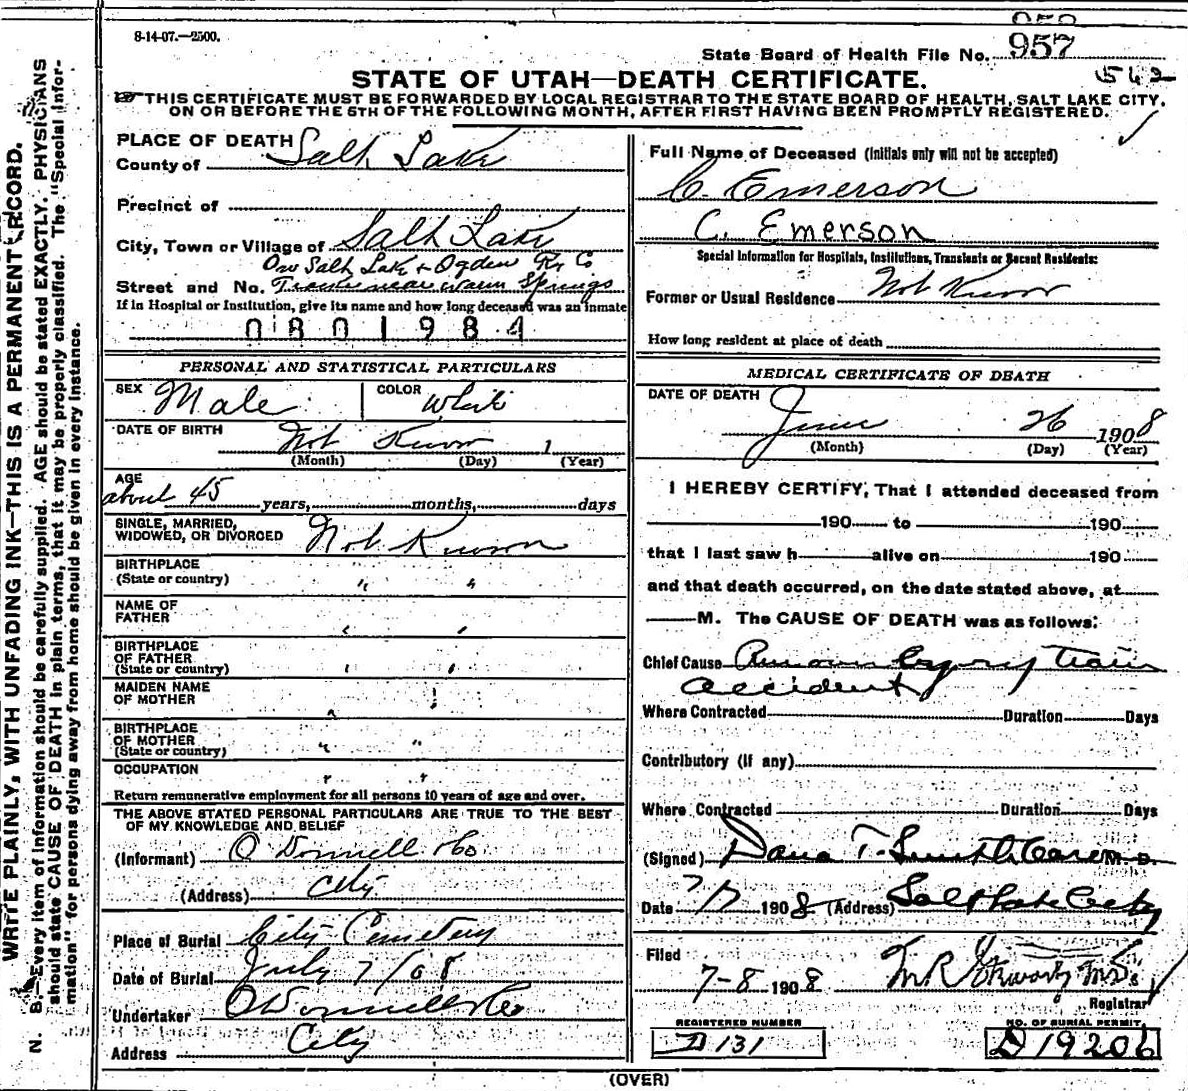 8-14-07.—2500.
State Board of Health File No. 957
562
STATE OF UTAH—DEATH CERTIFICATE.
THIS CERTIFICATE MUST BE FORWARDED BY LOCAL REGISTRAR TO THE STATE BOARD OF HEALTH, SALT LAKE CITY,
ON OR BEFORE THE 5TH OF THE FOLLOWING MONTH, AFTER FIRST HAVING BEEN PROMPTLY REGISTERED.
WRITE PLAINLY, WITH UNFADING INK—THIS IS A PERMANENT RECORD.
N. B.—Every item of information should be carefully supplied. AGE should be stated EXACTLY. PHYSICIANS
should state CAUSE OF DEATH in plain terms, that it may be properly classified. The "Special Infor-
mation" for persons dying away from home should be given in every instance.
PLACE OF DEATH
County of Salt Lake
Precinct of
City, Town or Village of Salt Lake
On Salt Lake & Ogden Ry Co
Street and No. Tracks near Warm Springs
If in Hospital or Institution, give its name and how long deceased was an inmate
0801984
PERSONAL AND STATISTICAL PARTICULARS
SEX Male COLOR White
DATE OF BIRTH Not Known 1
(Month) (Day) (Year)
AGE
about 45 years, months, days
SINGLE, MARRIED,
WIDOWED, OR DIVORCED Not Known
BIRTHPLACE
(State or country) " "
NAME OF
FATHER " "
BIRTHPLACE
OF FATHER
(State or country) " "
MAIDEN NAME
OF MOTHER " "
BIRTHPLACE
OF MOTHER
(State or country) " "
OCCUPATION " "
Return remunerative employment for all persons 10 years of age and over.
THE ABOVE STATED PERSONAL PARTICULARS ARE TRUE TO THE BEST
OF MY KNOWLEDGE AND BELIEF
(Informant) O'Donnell & Co.
(Address) City
Place of Burial City Cemetery
Date of Burial July 7/08
Undertaker O'Donnell & Co
Address City
Full Name of Deceased (Initials only will not be accepted)
C. Emerson
C. Emerson
Special Information for Hospitals, Institutions, Transients or Recent Residents:
Former or Usual Residence Not Known
How long resident at place of death
MEDICAL CERTIFICATE OF DEATH
DATE OF DEATH
June 26 1908
(Month) (Day) (Year)
I HEREBY CERTIFY, That I attended deceased from
190 to 190
that I last saw h alive on 190
and that death occurred, on the date stated above, at
M. The CAUSE OF DEATH was as follows:
Chief Cause Run over by Ry Train
accident
Where Contracted Duration Days
Contributory (if any)
Where Contracted Duration Days
(Signed) Dana T. Smith M. D.
Date 7/7 1908 (Address) Salt Lake City
Filed
7-8-1908 M R
Registrar
REGISTERED NUMBER
D 131
NO. OF BURIAL PERMIT
D 19206
(OVER)